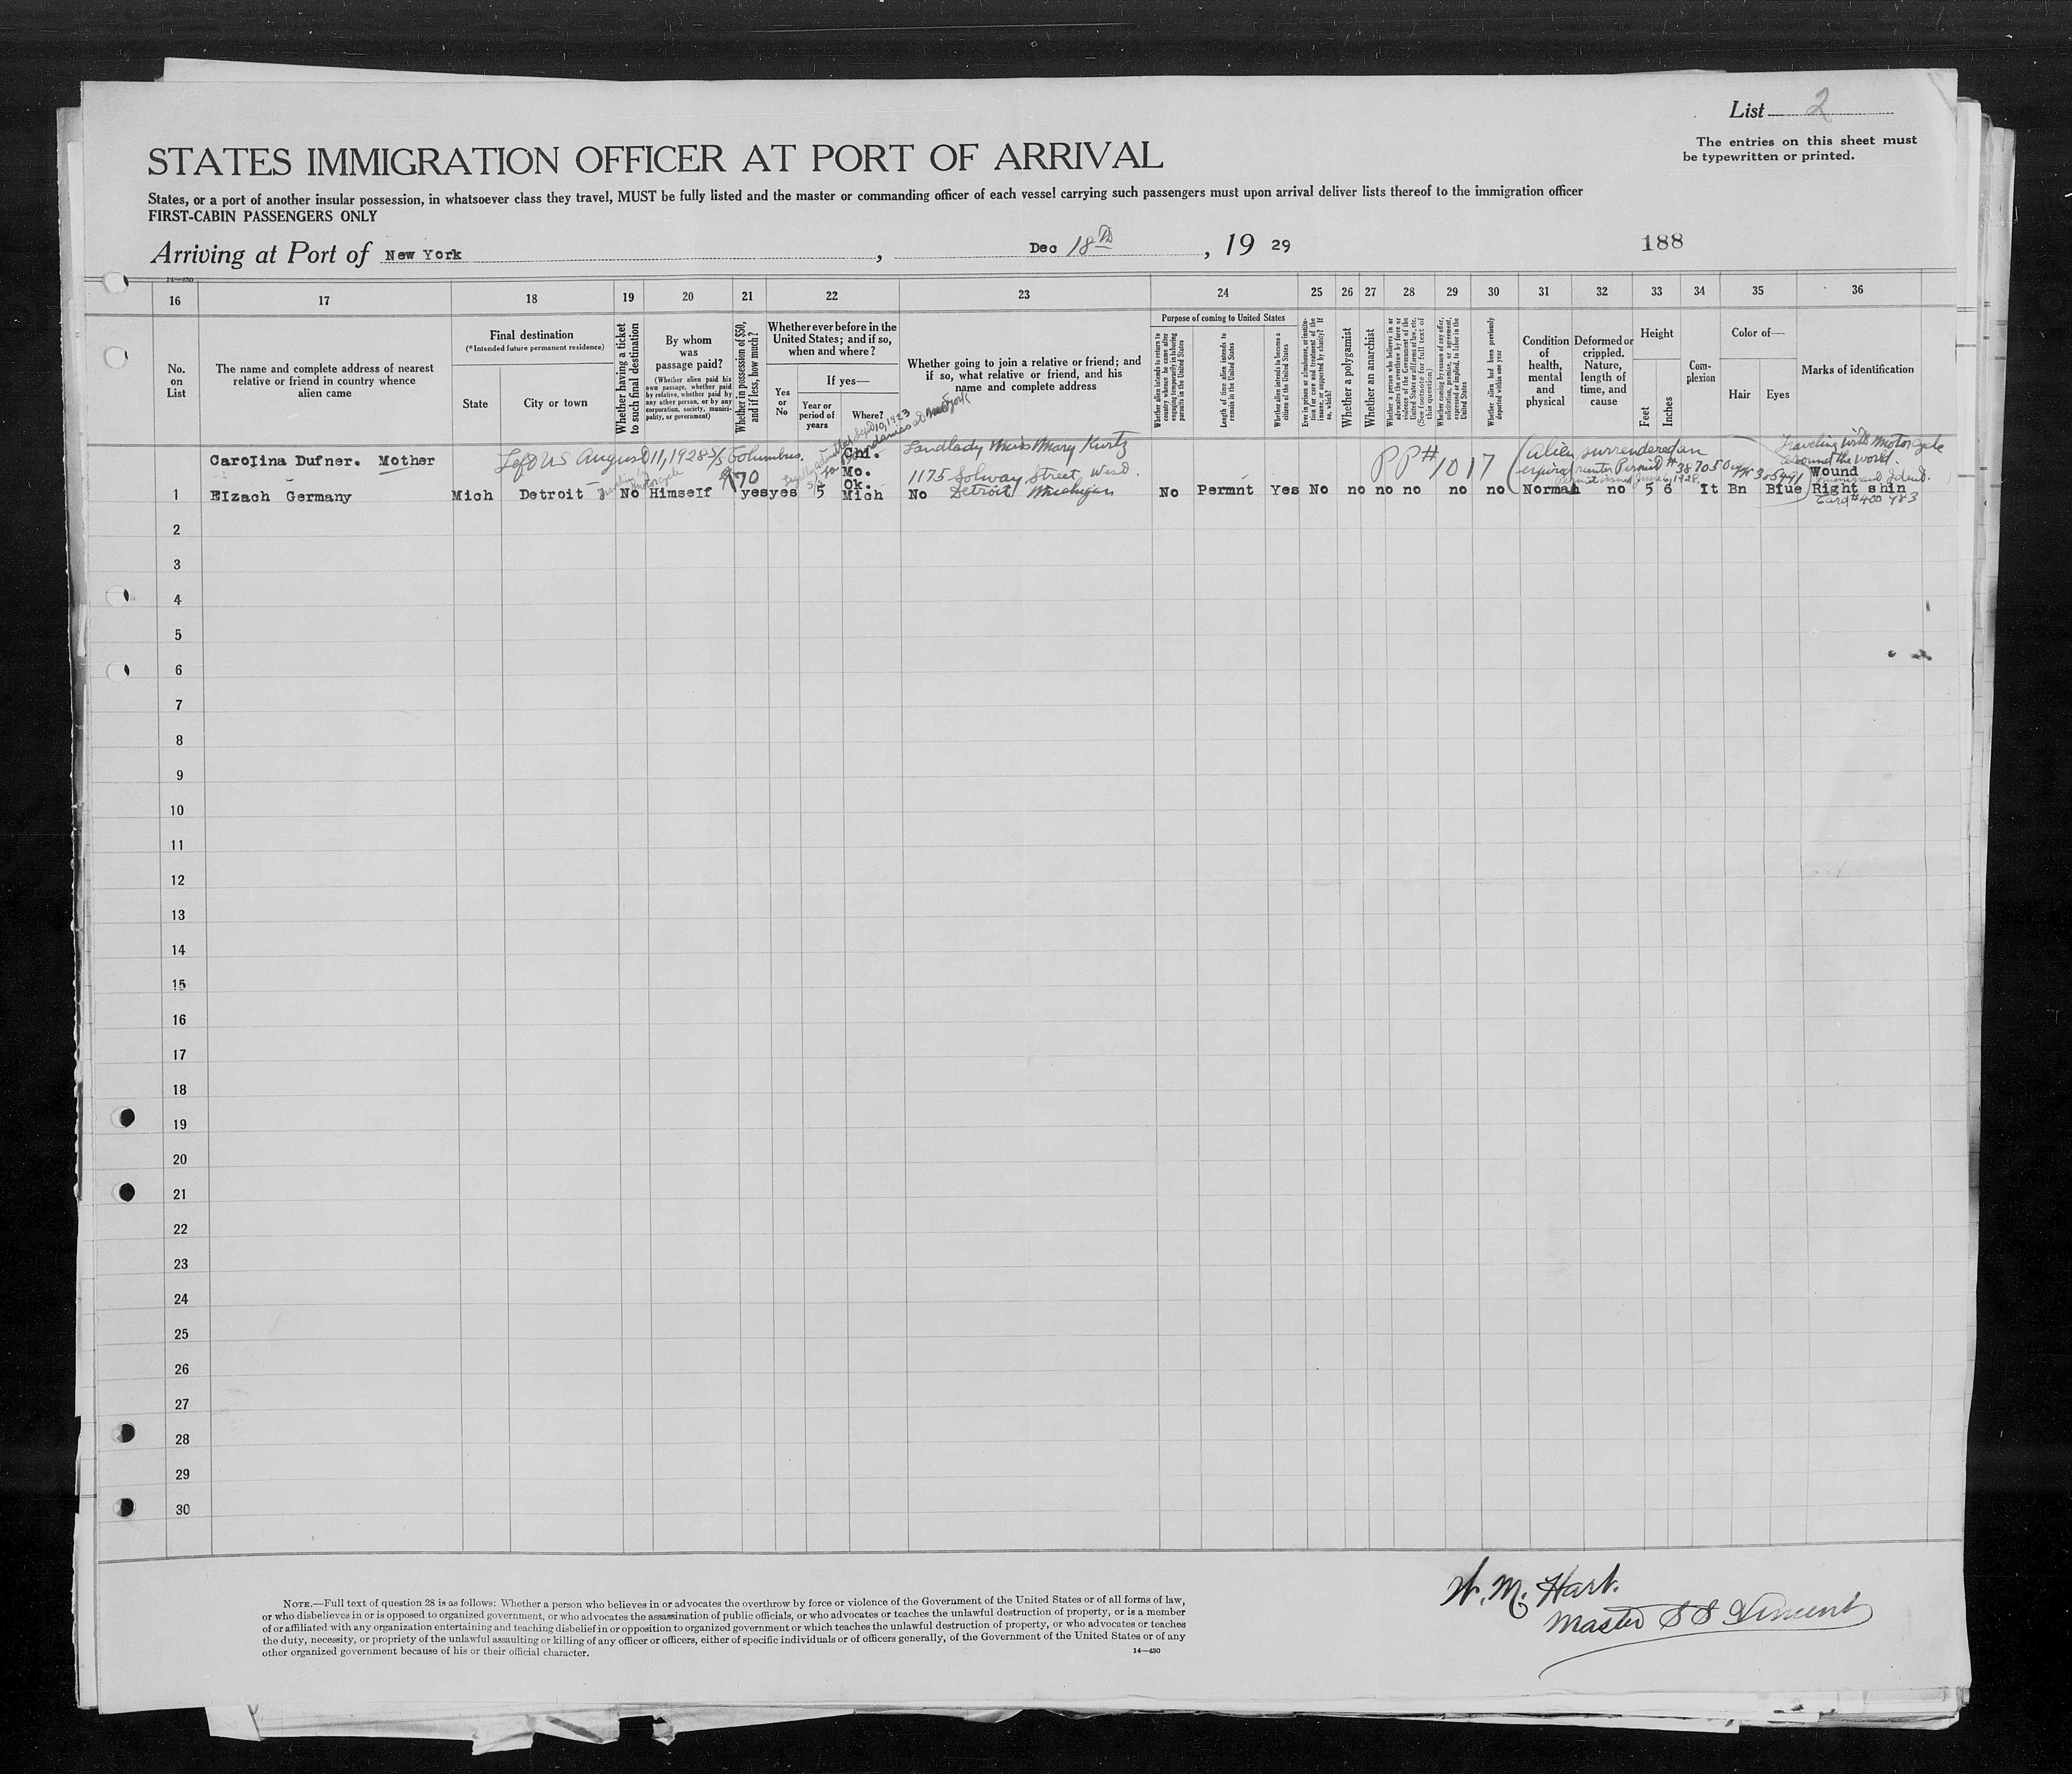 List 2
The entries on this sheet must
be typewritten or printed.
STATES IMMIGRATION OFFICER AT PORT OF ARRIVAL
States, or a port of another insular possession, in whatsoever class they travel, MUST be fully listed and the master or commanding officer of each vessel carrying such passengers must upon arrival deliver lists thereof to the immigration officer
FIRST-CABIN PASSENGERS ONLY
Arriving at Port of New York, Dec 18th, 19 29
188
14—430
16 17 18 19 20 21 22 23 24 25 26 27 28 29 30 31 32 33 34 35 36
No. on List
The name and complete address of nearest relative or friend in country whence alien came
Final destination
(*Intended future permanent residence)
State
City or town
Whether having a ticket to such final destination
By whom was passage paid?
(Whether alien paid his own passage, whether paid by relative, whether paid by any other person, or by any corporation, society, municipality, or government)
Whether in possession of $50, and if less, how much?
Whether ever before in the United States; and if so, when and where?
Yes or No
If yes—
Year or period of years
Where?
Whether going to join a relative or friend; and if so, what relative or friend, and his name and complete address
Purpose of coming to United States
Whether alien intends to return to country whence he came after engaging temporarily in laboring pursuits in the United States
Length of time alien intends to remain in the United States
Whether alien intends to become a citizen of the United States
Ever in prison or almshouse, or institution for care and treatment of the insane, or supported by charity? If so, which?
Whether a polygamist
Whether an anarchist
Whether a person who believes in or advocates the overthrow by force or violence of the Government of the United States or all forms of law, etc. (See footnote for full text of this question)
Whether coming by reason of any offer, solicitation, promise, or agreement, expressed or implied, to labor in the United States
Whether alien had been previously deported within one year
Condition of health, mental and physical
Deformed or crippled. Nature, length of time, and cause
Height
Feet
Inches
Complexion
Color of—
Hair
Eyes
Marks of identification
Carolina Dufner. Mother
Left US August 11, 1928 S/S Columbus.
Sept 10, 1923
New York
$170
Chi.
Mo.
Ok.
Landlady Miss Mary Kurtz
1175 Solway Street, West.
PP# 1017
(Alien surrendered an
expired Permit # 387050
issued June 6, 1928.
Traveling with Motorcycle
around the world.
Wound
1 Elzach Germany Mich Detroit No Himself yes yes 5 Mich No Detroit Michigan No Permnt Yes No no no no no no Normal no 5 6 lt Bn Blue Right shin
Immigrant Ident.
Card # 400783
2
3
4
5
6
7
8
9
10
11
12
13
14
15
16
17
18
19
20
21
22
23
24
25
26
27
28
29
30
W. M. Hart.
Master S S Vincent
NOTE.—Full text of question 28 is as follows: Whether a person who believes in or advocates the overthrow by force or violence of the Government of the United States or of all forms of law,
or who disbelieves in or is opposed to organized government, or who advocates the assassination of public officials, or who advocates or teaches the unlawful destruction of property, or is a member
of or affiliated with any organization entertaining and teaching disbelief in or opposition to organized government or which teaches the unlawful destruction of property, or who advocates or teaches
the duty, necessity, or propriety of the unlawful assaulting or killing of any officer or officers, either of specific individuals or of officers generally, of the Government of the United States or of any
other organized government because of his or their official character.
14—430